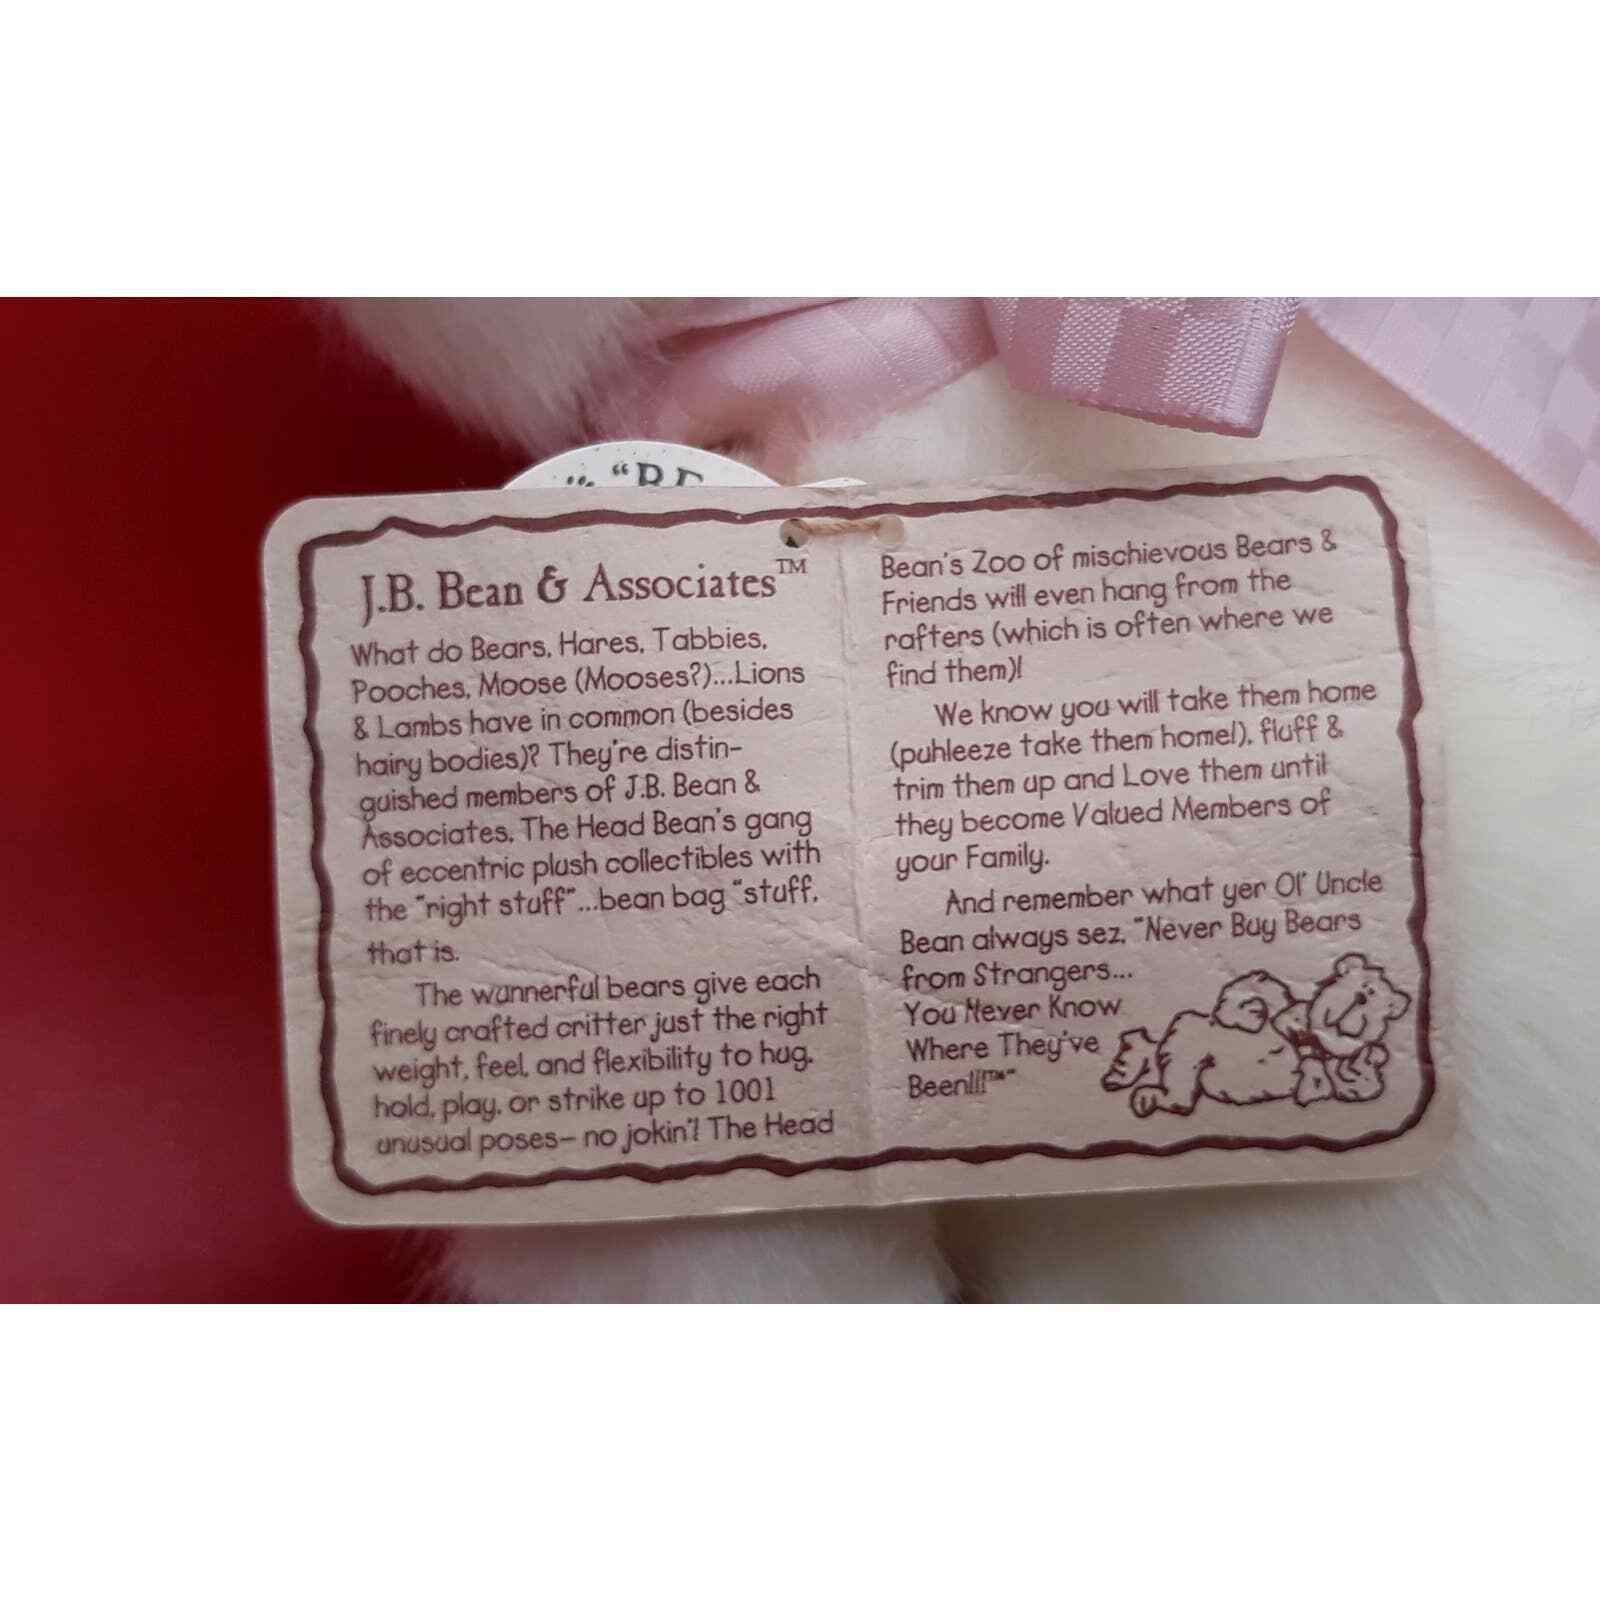 "BE
J.B. Bean & Associates™
What do Bears, Hares, Tabbies,
Pooches, Moose (Mooses?)...Lions
& Lambs have in common (besides
hairy bodies)? They're distin-
guished members of J.B. Bean &
Associates, The Head Bean's gang
of eccentric plush collectibles with
the "right stuff"...bean bag "stuff,
that is.
The wunnerful bears give each
finely crafted critter just the right
weight, feel, and flexibility to hug,
hold, play, or strike up to 1001
unusual poses– no jokin'! The Head
Bean's Zoo of mischievous Bears &
Friends will even hang from the
rafters (which is often where we
find them)!
We know you will take them home
(puhleeze take them home!), fluff &
trim them up and Love them until
they become Valued Members of
your Family.
And remember what yer Ol' Uncle
Bean always sez, "Never Buy Bears
from Strangers...
You Never Know
Where They've
Been!!!™"